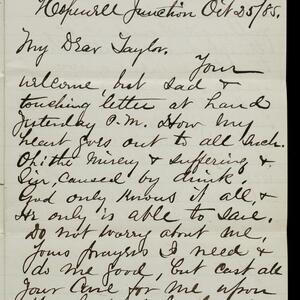 Hopewell Junction Oct 25/85.
My Dear Taylor.
Your
welcome, but sad &
touching letter at hand
Yesterday P.M. How my
heart goes out to all such.
Oh! the misery & suffering &
Sin, caused by drink,
God only knows it all &
He only is able to save.
Do not worry about me,
Your prayers I need &
do me good, but cast all
your care for me upon